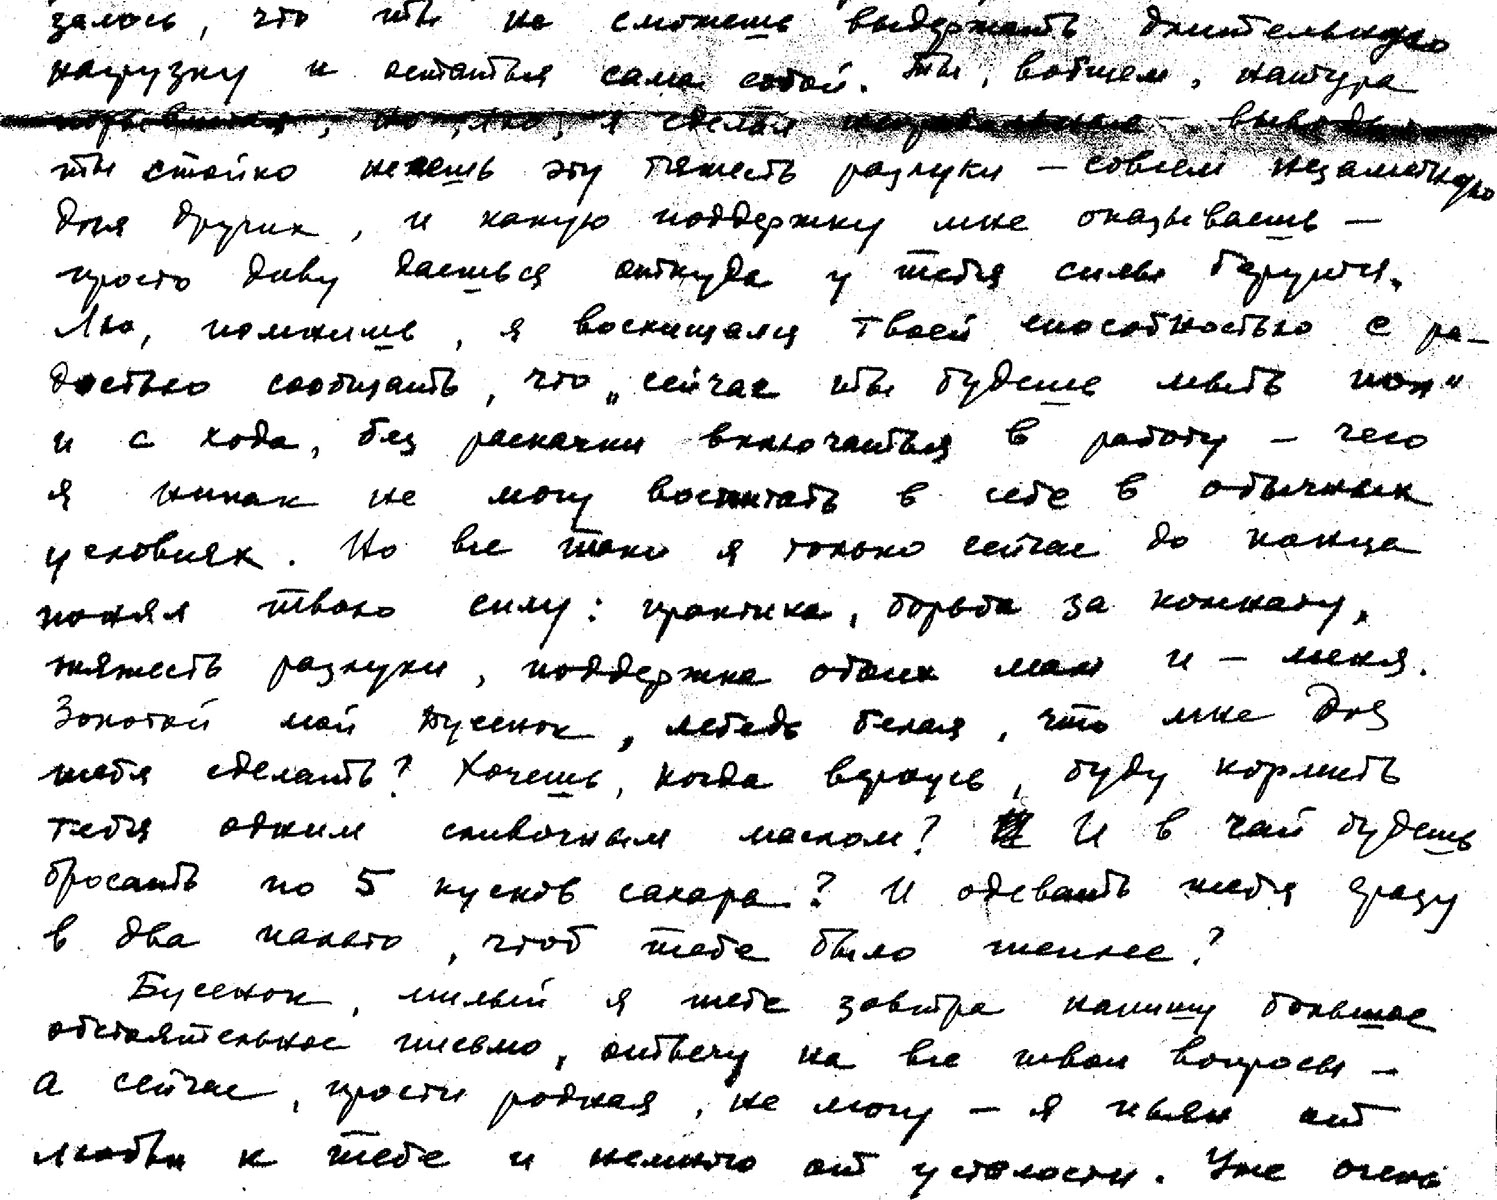 залось, что ты не сможешь выдержать длительную
нагрузку и остаться сама собой. Ты, вобщем, натура
порывистая, но, Лю, я сделал неправильные выводы
ты стойко несешь эту тяжесть разлуки — совсем незаметную
для других, и какую поддержку мне оказываешь —
просто диву даешься откуда у тебя силы берутся.
Лю, помнишь, я восхищался твоей способностью с ра-
достью сообщать, что „сейчас ты будешь мыть пол"
и с хода, без раскачки включаться в работу — чего
я никак не могу воспитать в себе в обычных
условиях. Но все таки я только сейчас до конца
понял твою силу: практика, борьба за комнату,
тяжесть разлуки, поддержка обоих мам и — меня.
Золотой мой Бусенок, лебедь белая, что мне для
тебя сделать? Хочешь, когда вернусь, буду кормить
тебя одним сливочным маслом? И в чай будешь
бросать по 5 кусков сахара? И одевать тебя сразу
в два пальто, чтоб тебе было теплее?
Бусенок, милый я тебе завтра напишу большое
обстоятельное письмо, отвечу на все твои вопросы —
а сейчас, прости родная, не могу — я пьян от
любви к тебе и немного от усталости. Уже очень